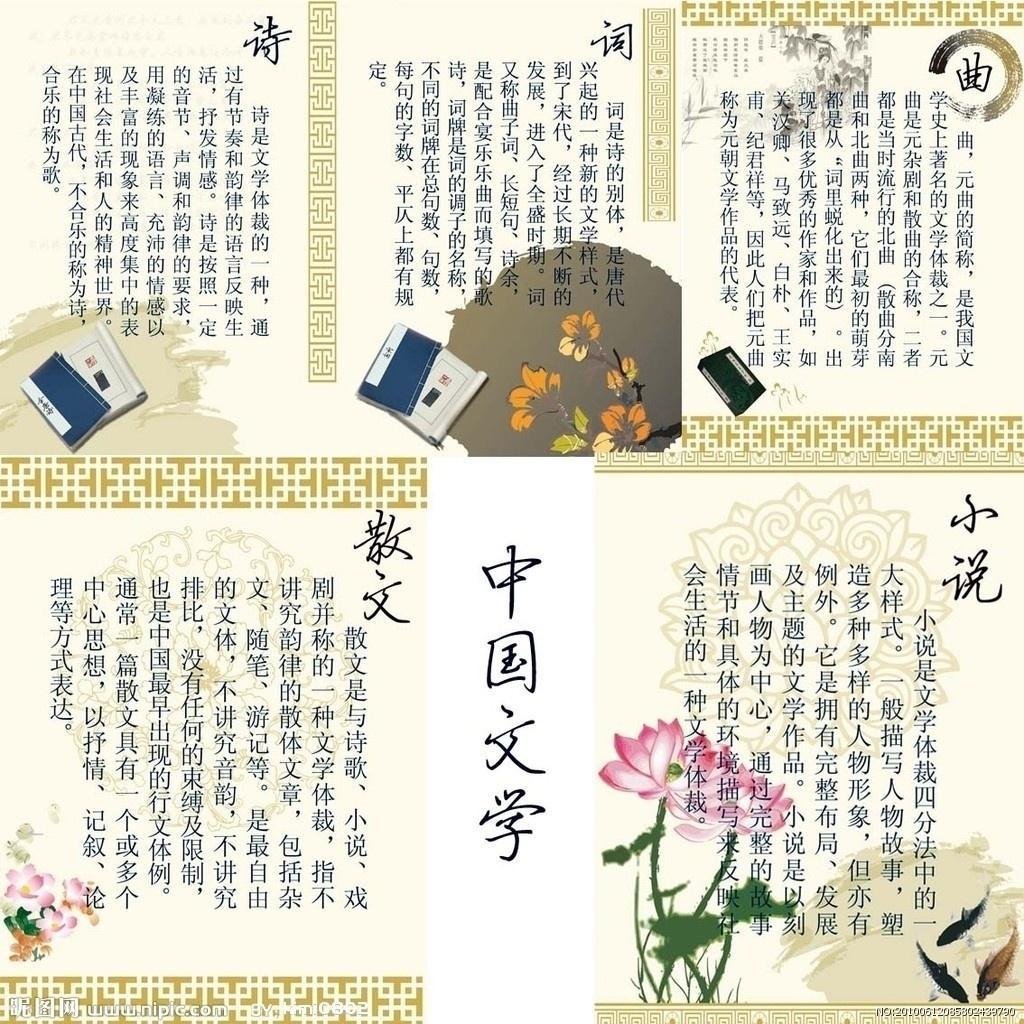 诗
诗是文学体裁的一种，通
过有节奏和韵律的语言反映生
活，抒发情感。诗是按照一定
的音节、声调和韵律的要求，
用凝练的语言、充沛的情感以
及丰富的现象来高度集中的表
现社会生活和人的精神世界。
在中国古代，不合乐的称为诗，
合乐的称为歌。
词
词是诗的别体，是唐代
兴起的一种新的文学样式，
到了宋代，经过长期不断的
发展，进入了全盛时期。词
又称曲子词、长短句、诗余，
是配合宴乐乐曲而填写的歌
诗，词牌是词的调子的名称，
不同的词牌在总句数、句数，
每句的字数、平仄上都有规
定。
曲
曲，元曲的简称，是我国文
学史上著名的文学体裁之一。元
曲是元杂剧和散曲的合称，二者
都是当时流行的北曲（散曲分南
曲和北曲两种，它们最初的萌芽
都是从“词里蜕化出来的）。出
现了很多优秀的作家和作品，如
关汉卿、马致远、白朴、王实
甫、纪君祥等，因此人们把元曲
称为元朝文学作品的代表。
散文
散文是与诗歌、小说、戏
剧并称的一种文学体裁，指不
讲究韵律的散体文章，包括杂
文、随笔、游记等。是最自由
的文体，不讲究音韵，不讲究
排比，没有任何的束缚及限制，
也是中国最早出现的行文体例。
通常一篇散文具有一个或多个
中心思想，以抒情、记叙、论
理等方式表达。
中国文学
小说
小说是文学体裁四分法中的一
大样式。一般描写人物故事，塑
造多种多样的人物形象，但亦有
例外。它是拥有完整布局、发展
及主题的文学作品。小说是以刻
画人物为中心，通过完整的故事
情节和具体的环境描写来反映社
会生活的一种文学体裁。
昵图网 www.nipic.com
NO:20100612085802439790